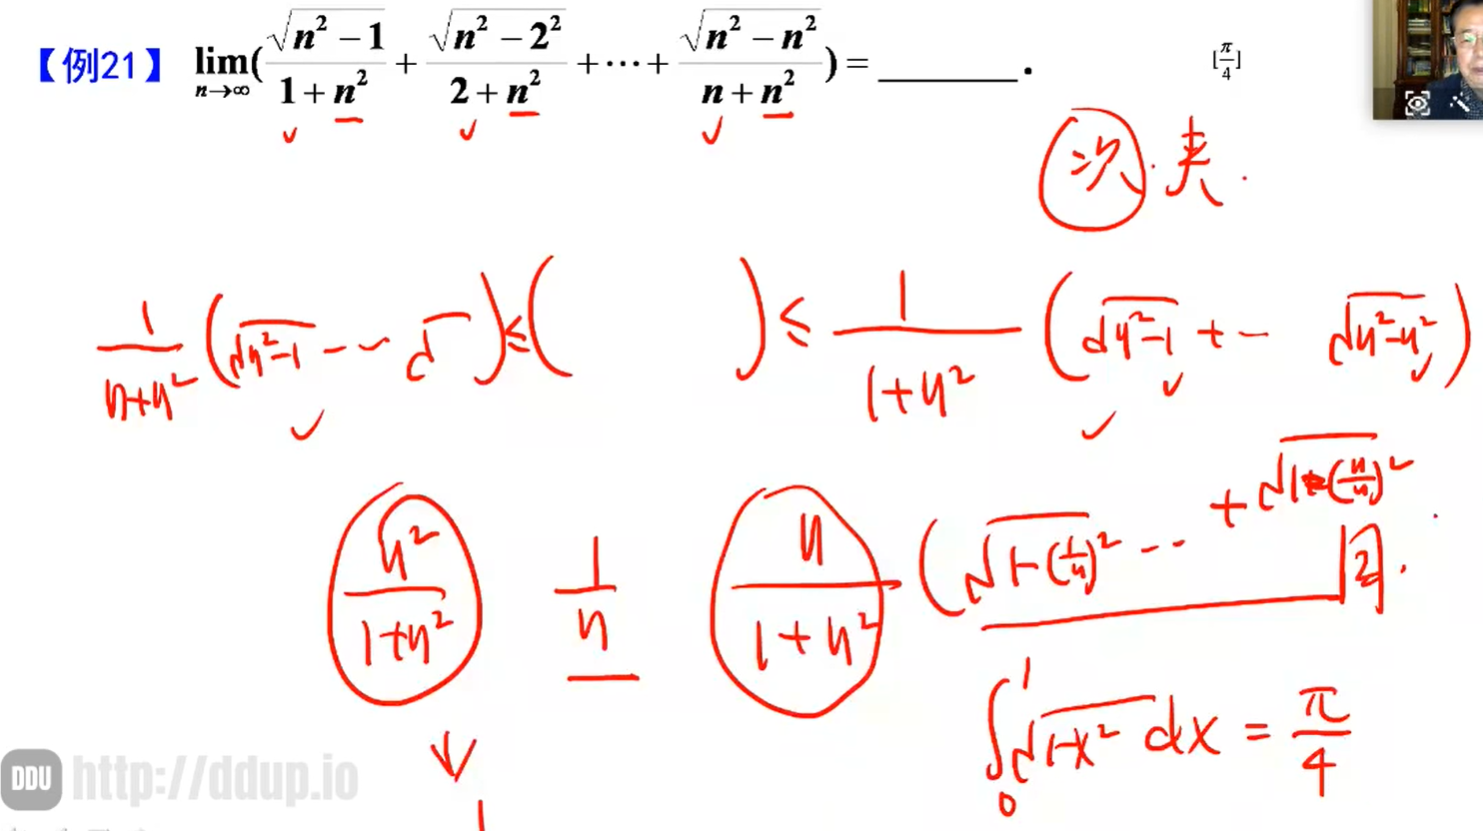 【例21】 lim_{n→∞}(√(n²−1)/(1+n²) + √(n²−2²)/(2+n²) + ⋯ + √(n²−n²)/(n+n²)) = ______. [π/4]
次·夹.
1/(n+n²) (√(n²−1) -- √ ) ≤ ( ) ≤ 1/(1+n²) (√(n²−1) + -- √(n²−n²))
n²/(1+n²) 1/n n/(1+n²) (√(1−(1/n)²) -- + √(1−(n/n)²)
∫₀¹ √(1−x²) dx = π/4
DDU http://ddup.io